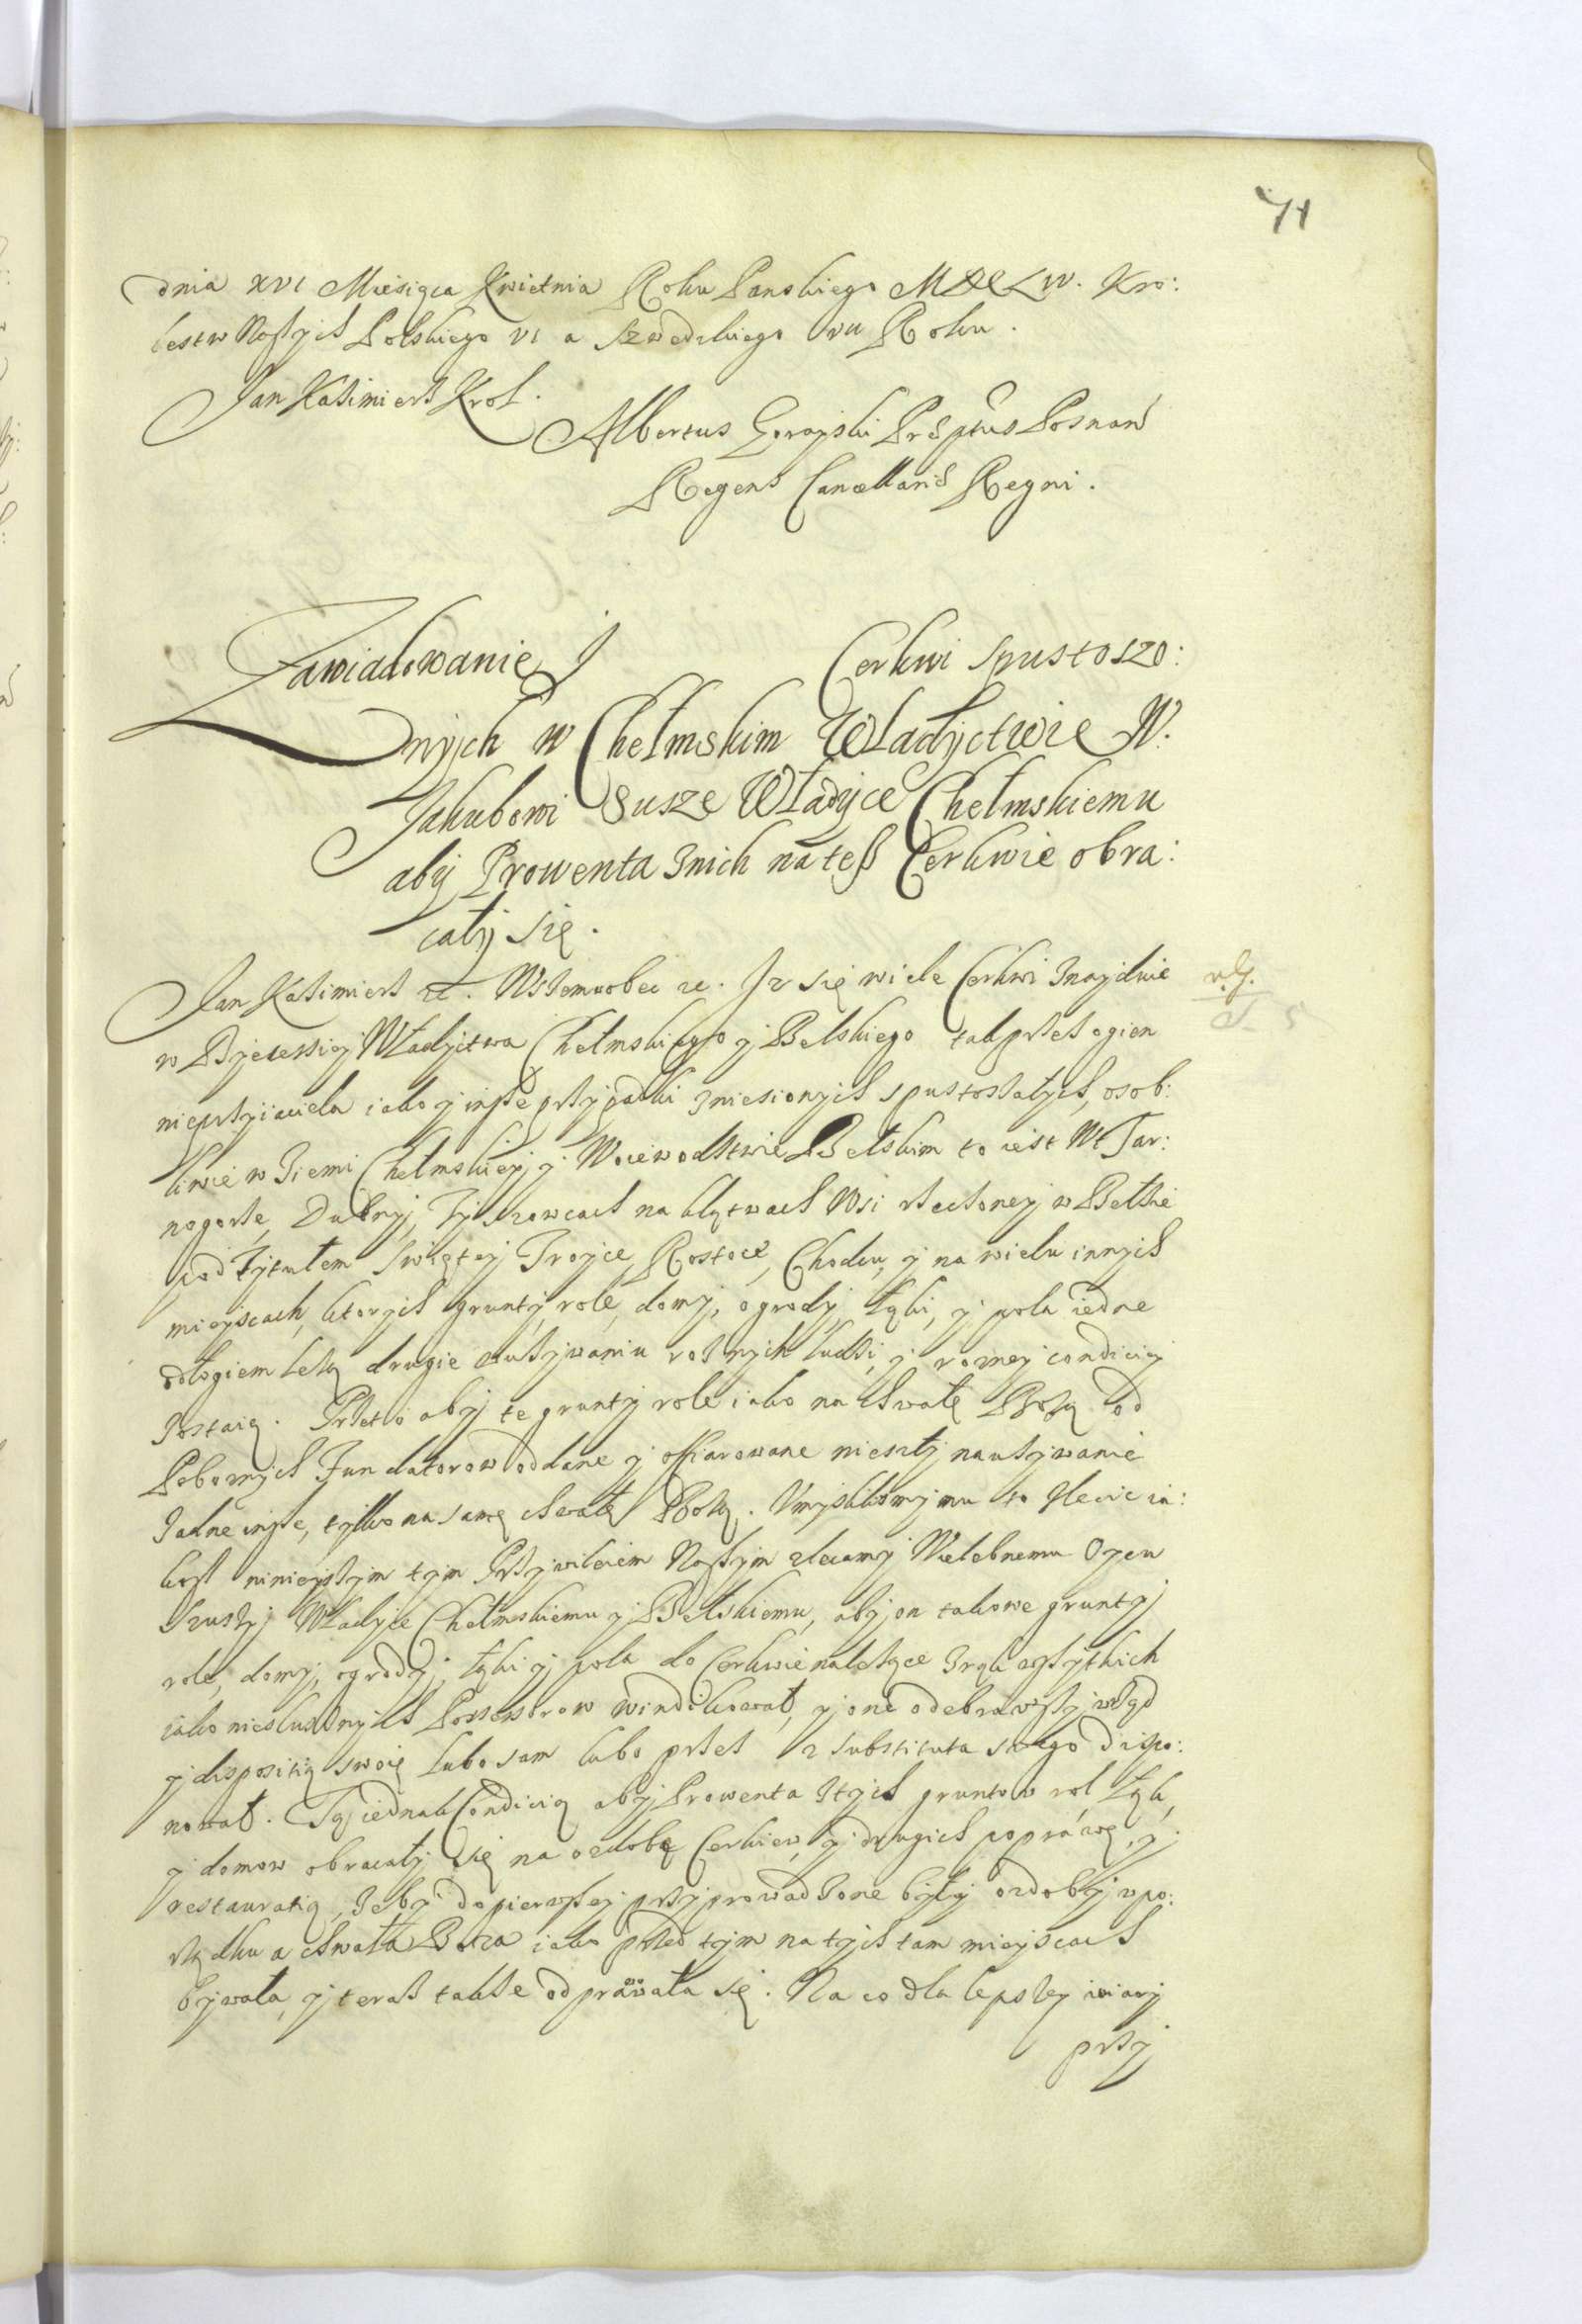 71
dnia XVI Miesiąca Kwietnia Roku Panskiego MDCLIV. Kro:
lestw Naszych Polskiego VI a Szwedzkiego VII Roku.
Jan Kazimierz Krol.
Albertus Gorayski Posnan
Regens Cancellariæ Regni.
Zawiadowanie Cerkwi spustoszo:
nych w Chełmskim Władyctwie W.
Jakubowi Susze Władyce Chełmskiemu
aby Prowenta z nich na tesz Cerkwie obra:
cały się.
Jan Kazimierz etc. Wszem wobec etc. Iz się wiele Cerkwi znayduie
w Dyecessiey Władyctwa Chełmskiego y Belskiego tak przez ogien
nieprzyiaciela iako y insze przypadki zniesionych spustoszałych, osob:
liwie w Ziemi Chełmskiey y Woiewodztwie Bełskim to iest W Tar:
nogorze, Dubny, Tyszowcach na Wsi rzeczoney w Bełzie
pod Tytułem Swiętey Troyce, Rostoce, Chodcu, y na wielu innych
mieyscach, ktorych grunty, role, domy, ogrody, łąki, y pola iedne
odłogiem leżą drugie w używaniu roznych ludzi, y rozney condiciey
zostaią. Przeto aby te grunty role iako na chwałę Bożą od
Pobornych Fundatorow oddane y offiarowane nie szły na używanie
żadne insze, tylko na samę chwałę Bożą. Umyslilismy mu to zlecić ia:
kosz ninieyszym tym Przywileiem Naszym zlecamy Wielebnemu Oycu
Suszy Władyce Chełmskiemu y Bełskiemu, aby on takowe grunty
role, domy, ogrody, łąki y pola do Cerkwie należące z rąk wszytkich
iako niesłusznych Possessorow windikował, y one odebrawszy w rząd
y dispositią swoię lubo sam lubo przez substituta swego dispo:
nował. Tą iednak Condicią aby Prowenta z tych gruntow rol łąk,
y domow obracały się na ozdobę Cerkiew, y drugich poprawę, y
restauratią, żeby do pierwszey przyprowadzone były ozdoby w po:
rządku a chwała Boza iako przed tym na tych tam mieyscach
bywała, y teraz także odprawowała się. Na co dla lepszey wiary
przy